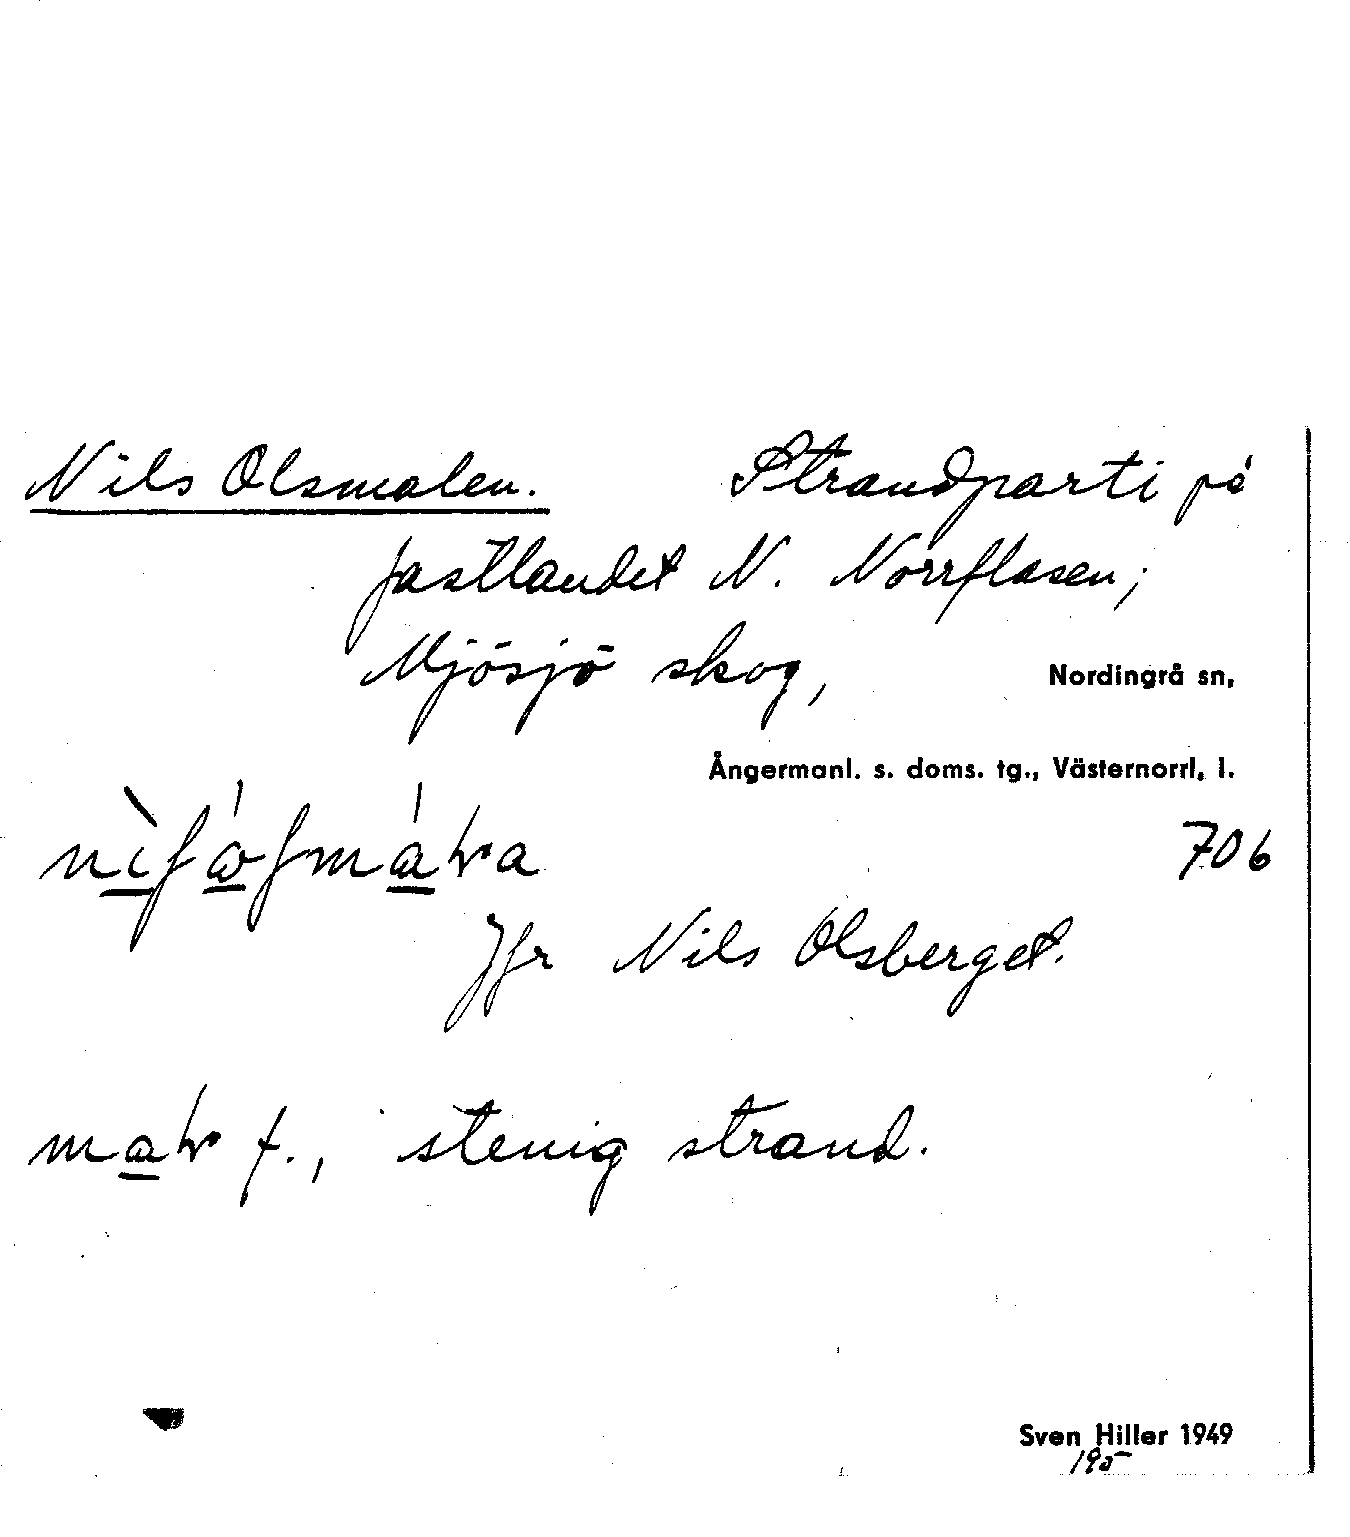 Nils Olsmalen. Strandparti på
fastlandet N. Norrflasen;
Mjösjö skog, Nordingrå sn,
Ångermanl. s. doms. tg., Västernorrl. l.
706
Jfr Nils Olsberget.
f., stenig strand.
Sven Hiller 1949